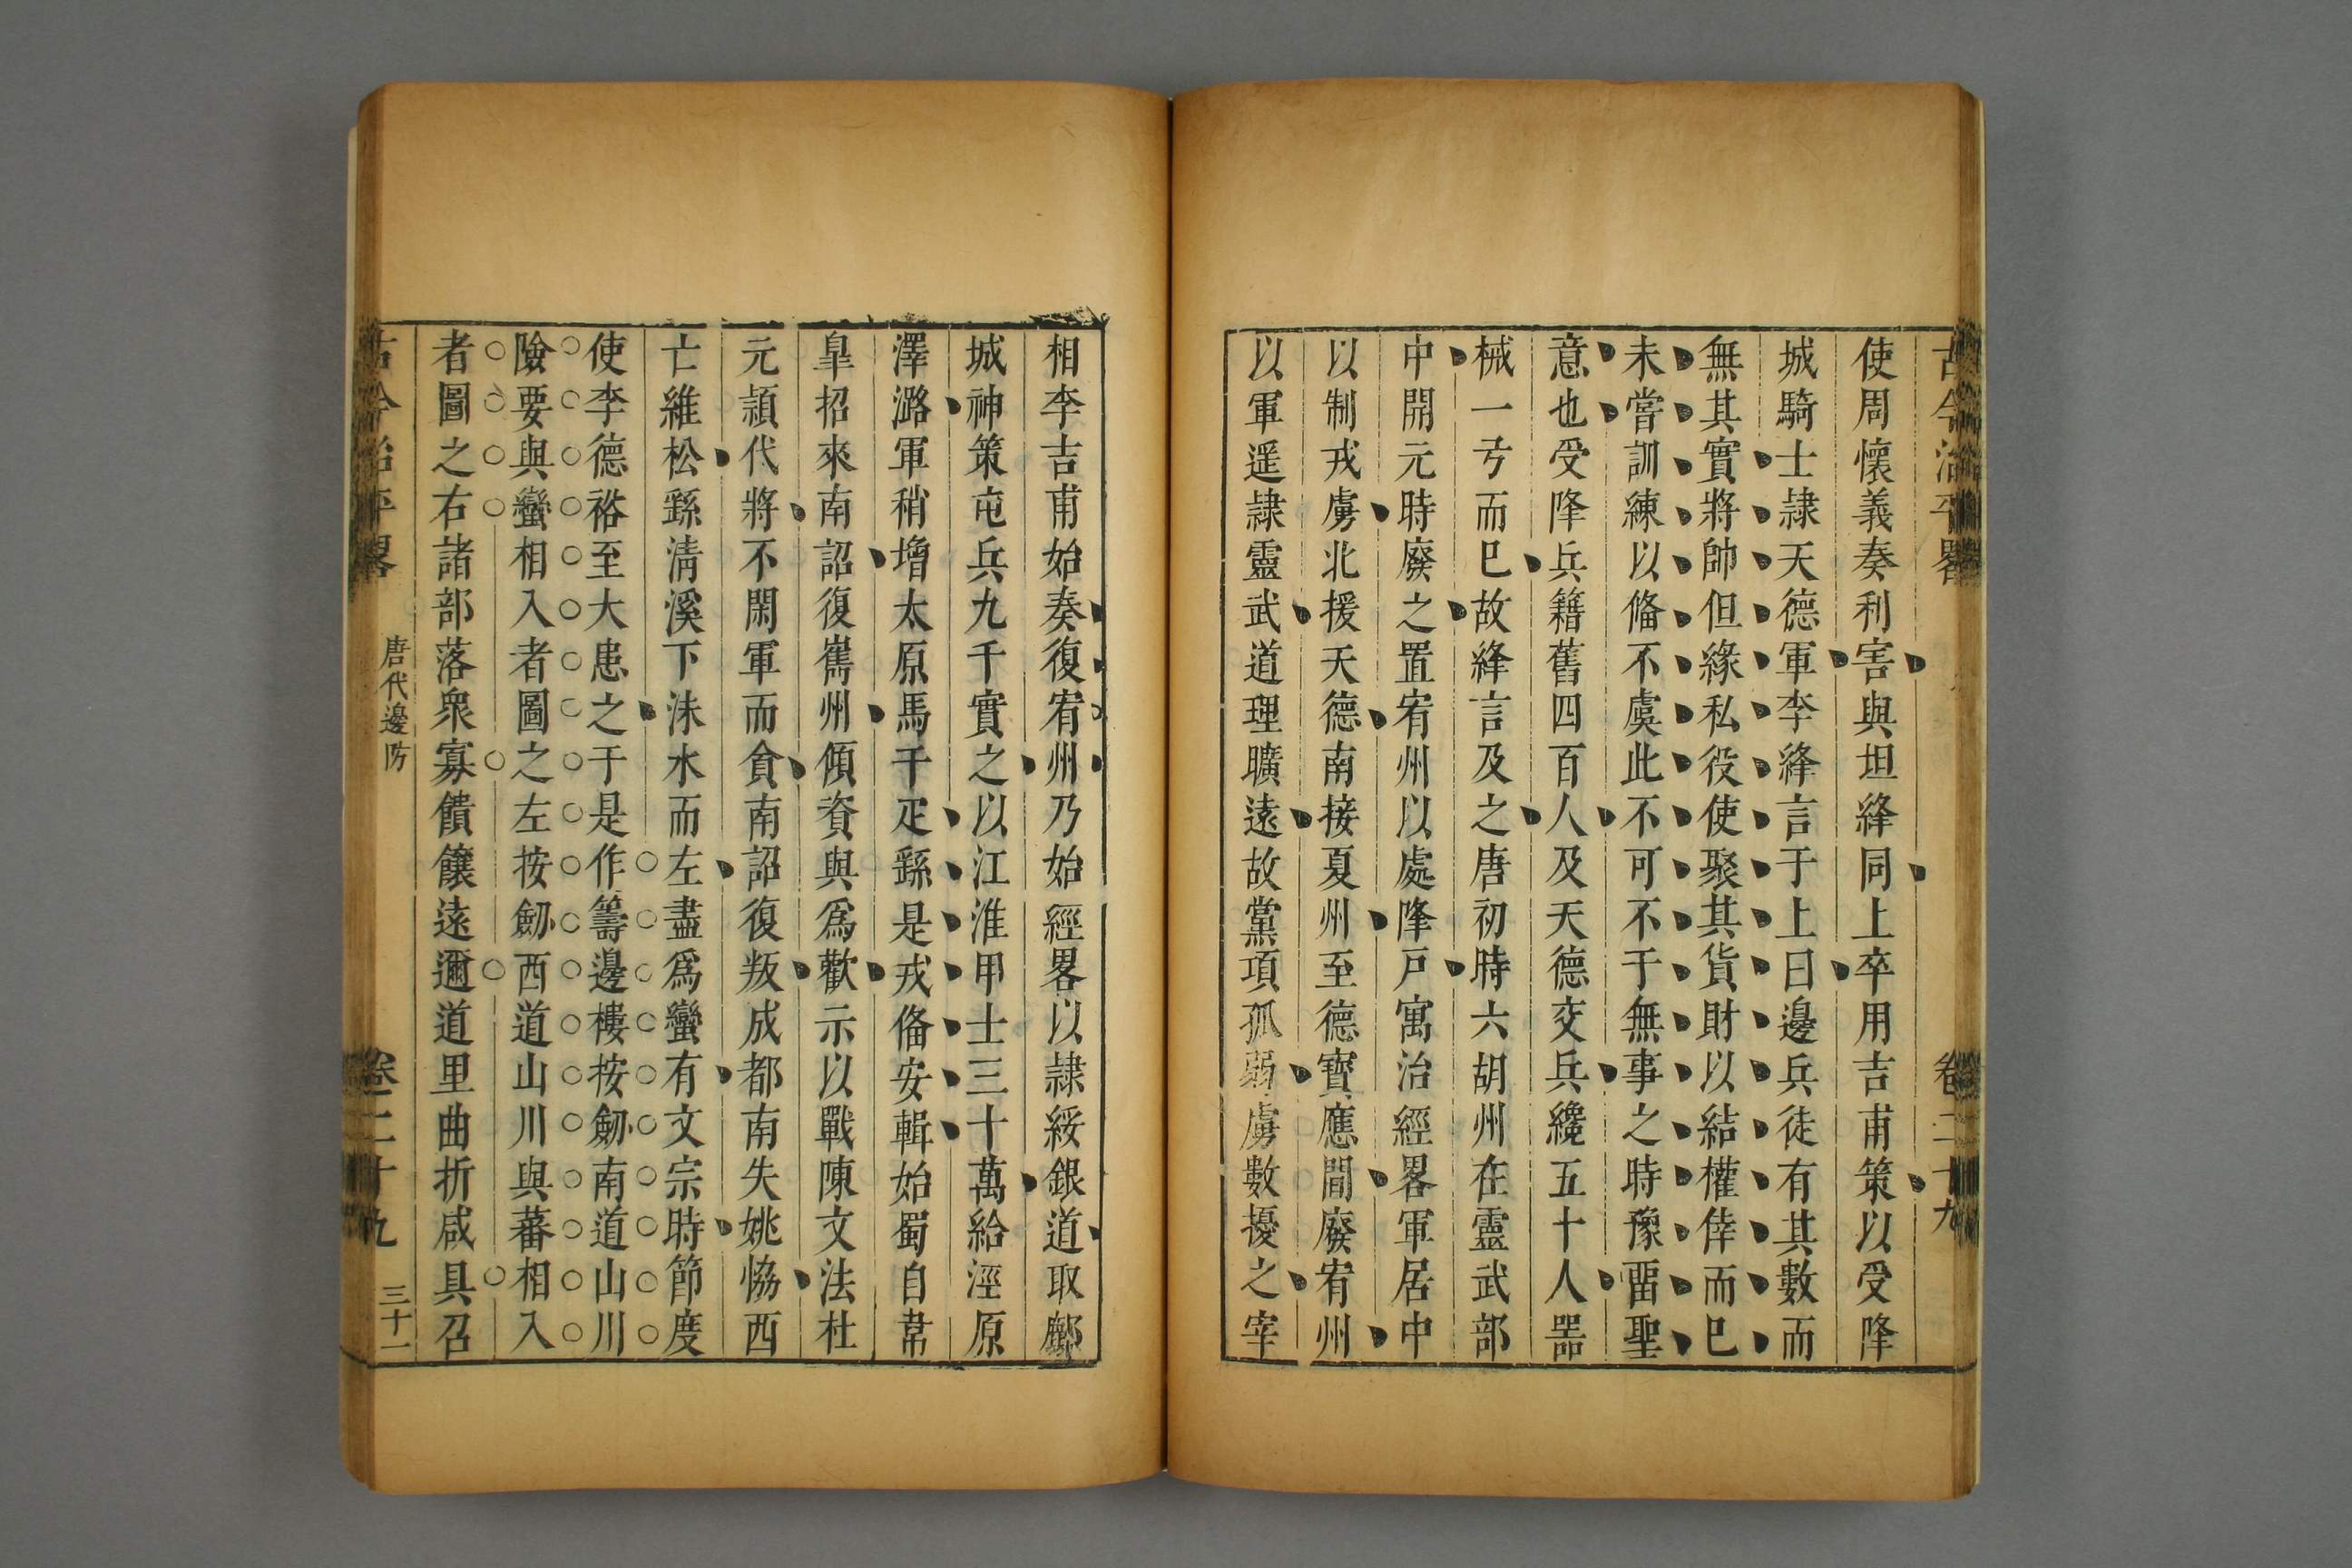 古今治平畧 卷二十九
使周懷義奏利害與坦絳同上卒用吉甫策以受降
城騎士隷天德軍李絳言于上曰邊兵徒有其數而
無其實將帥但緣私役使聚其貨財以結權倖而已
未嘗訓練以俻不虞此不可不于無事之時豫畱聖
意也受降兵籍舊四百人及天德交兵纔五十人器
械一弓而已故絳言及之唐初時六胡州在靈武部
中開元時廢之置宥州以處降戸寓治經畧軍居中
以制戎虜北援天德南接夏州至德寶應間廢宥州
以軍遥隷靈武道理曠逺故黨項孤弱虜數擾之宰
相李吉甫始奏復宥州乃始經畧以隷綏銀道取鄜
城神策屯兵九千實之以江淮甲士三十萬給涇原
澤潞軍稍增太原馬千疋繇是戎俻安輯始蜀自韋
臯招來南詔復嶲州傾資與爲歡示以戰陳文法杜
元頴代將不閑軍而貪南詔復叛成都南失姚恊西
亡維松繇淸溪下沬水而左盡爲蠻有文宗時節度
使李德裕至大患之于是作籌邊樓按劒南道山川
險要與蠻相入者圖之左按劒西道山川與蕃相入
者圖之右諸部落衆寡饋饟逺邇道里曲折咸具召
古今治平畧 唐代邊防 卷二十九 三十一